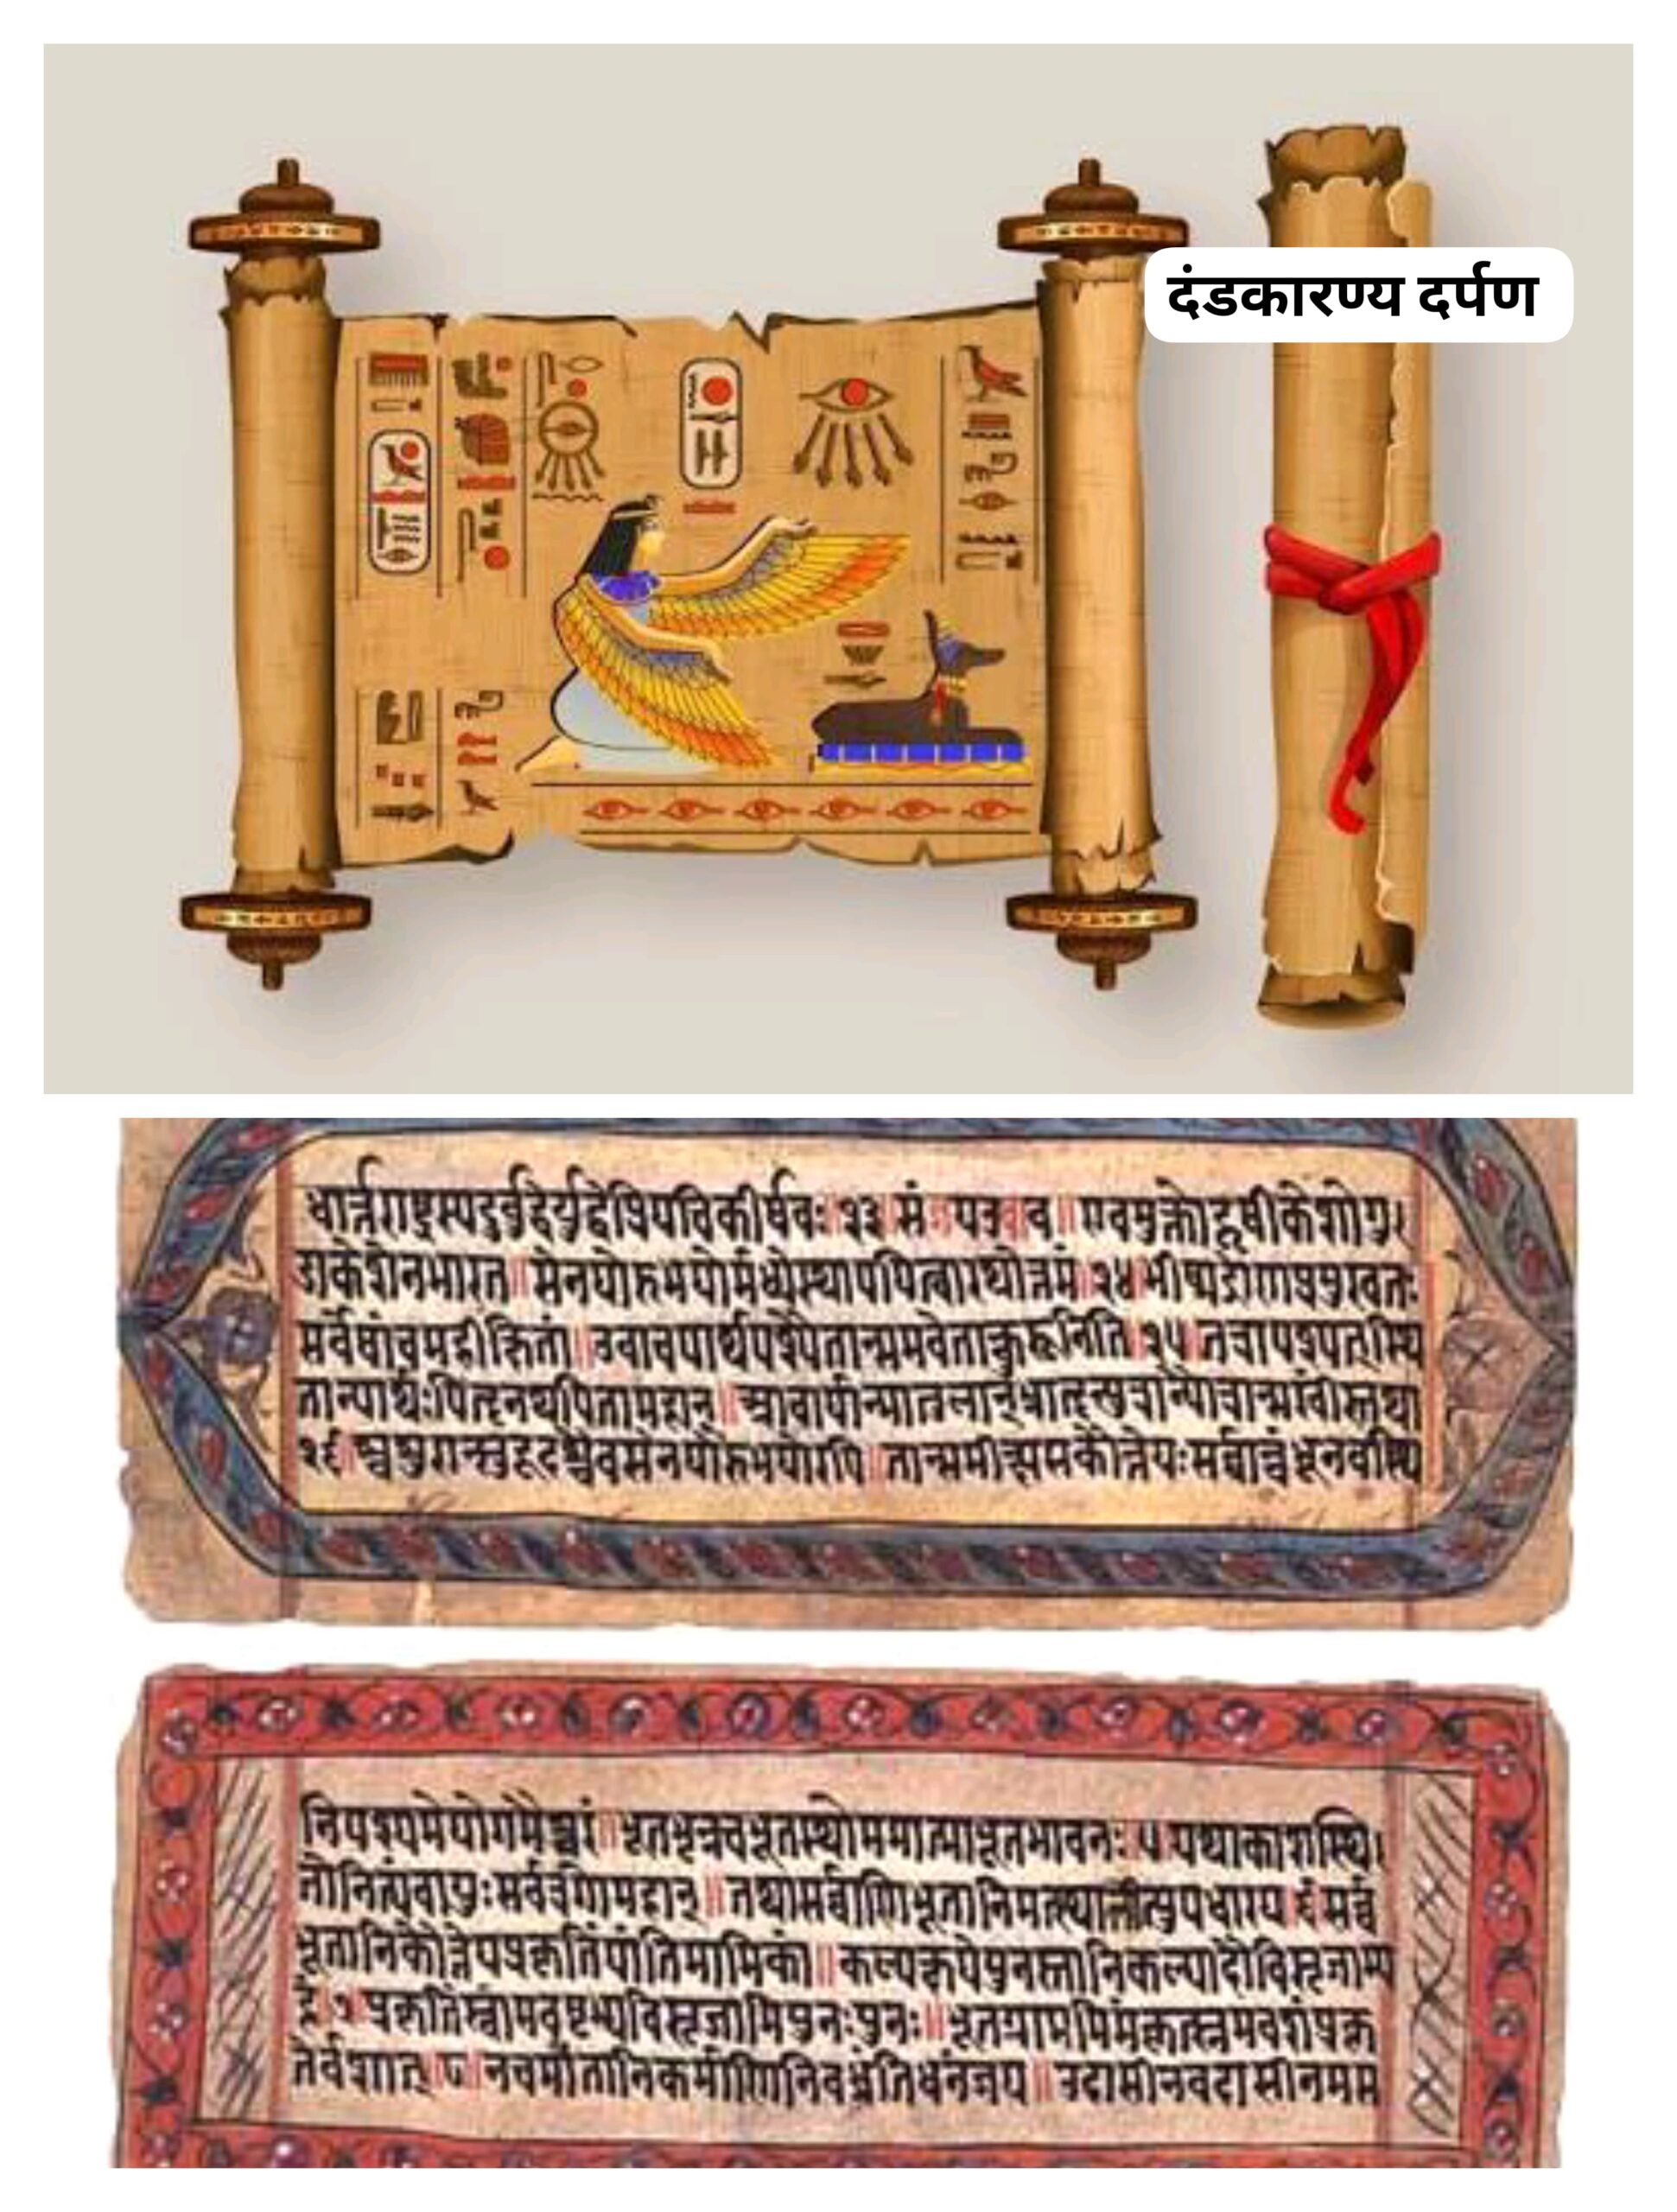 दंडकारण्य दर्पण
धार्त्तराष्ट्रस्यदुर्बुद्धेर्युद्धेप्रियचिकीर्षवः॥२३॥संजयउवाच॥एवमुक्तोहृषीकेशोगु।
डाकेशेनभारत॥सेनयोरुभयोर्मध्येस्थापयित्वारथोत्तमं॥२४॥भीष्मद्रोणप्रमुखतः
सर्वेषांचमहीक्षितां॥उवाचपार्थपश्यैतान्समवेतान्कुरूनिति॥२५॥तत्रापश्यत्स्थि
तान्पार्थःपितॄनथपितामहान्॥आचार्यान्मातुलान्भ्रातॄन्पुत्रान्पौत्रान्सखींस्तथा
२६॥श्वशुरान्सुहृदश्चैवसेनयोरुभयोरपि॥तान्समीक्ष्यसकौन्तेयःसर्वान्बंधूनवस्थि
निपश्यमेयोगमैश्वरं॥भूतभृन्नचभूतस्थोममात्माभूतभावनः॥५॥यथाकाशस्थि।
तोनित्यंवायुःसर्वत्रगोमहान्॥तथासर्वाणिभूतानिमत्स्थानीत्युपधारय॥६॥सर्व
भूतानिकौन्तेयप्रकृतिंयांतिमामिकां॥कल्पक्षयेपुनस्तानिकल्पादौविसृजाम्य
हं॥७॥प्रकृतिंस्वामवष्टभ्यविसृजामिपुनःपुनः॥भूतग्राममिमंकृत्स्नमवशंप्रकृ
तेर्वशात्॥८॥नचमांतानिकर्माणिनिबध्नंतिधनंजय॥उदासीनवदासीनमस